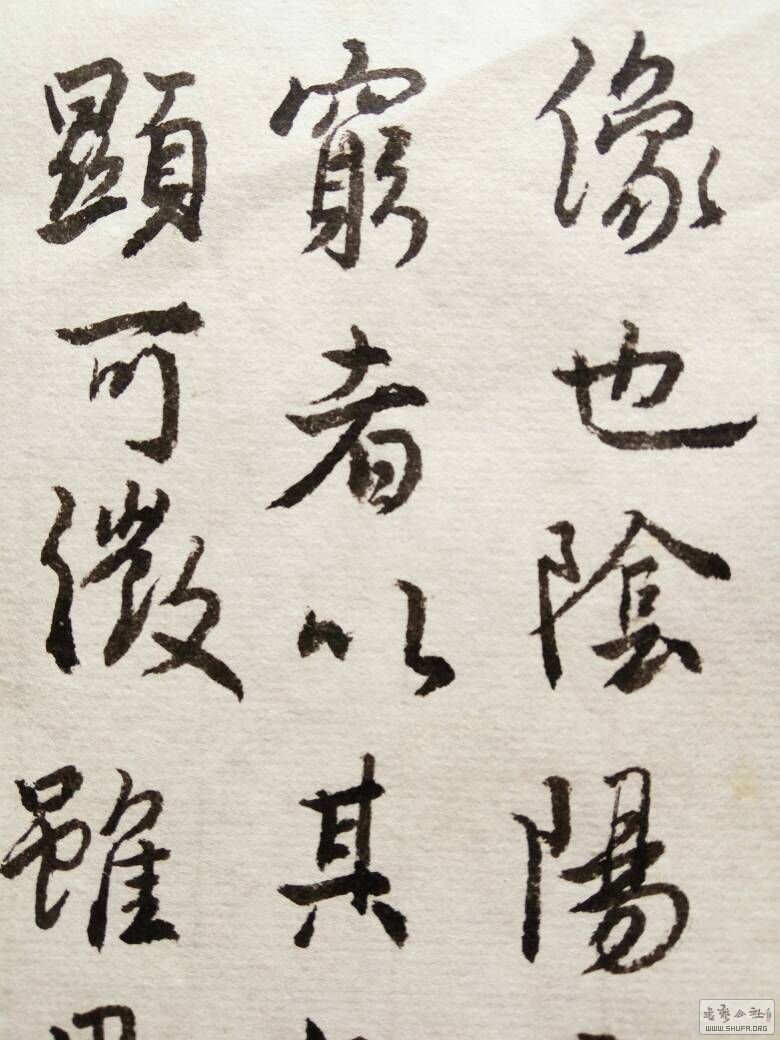 像也陰陽
窮者以其
顯可徵雖
書藝公社
WWW.SHUFA.ORG